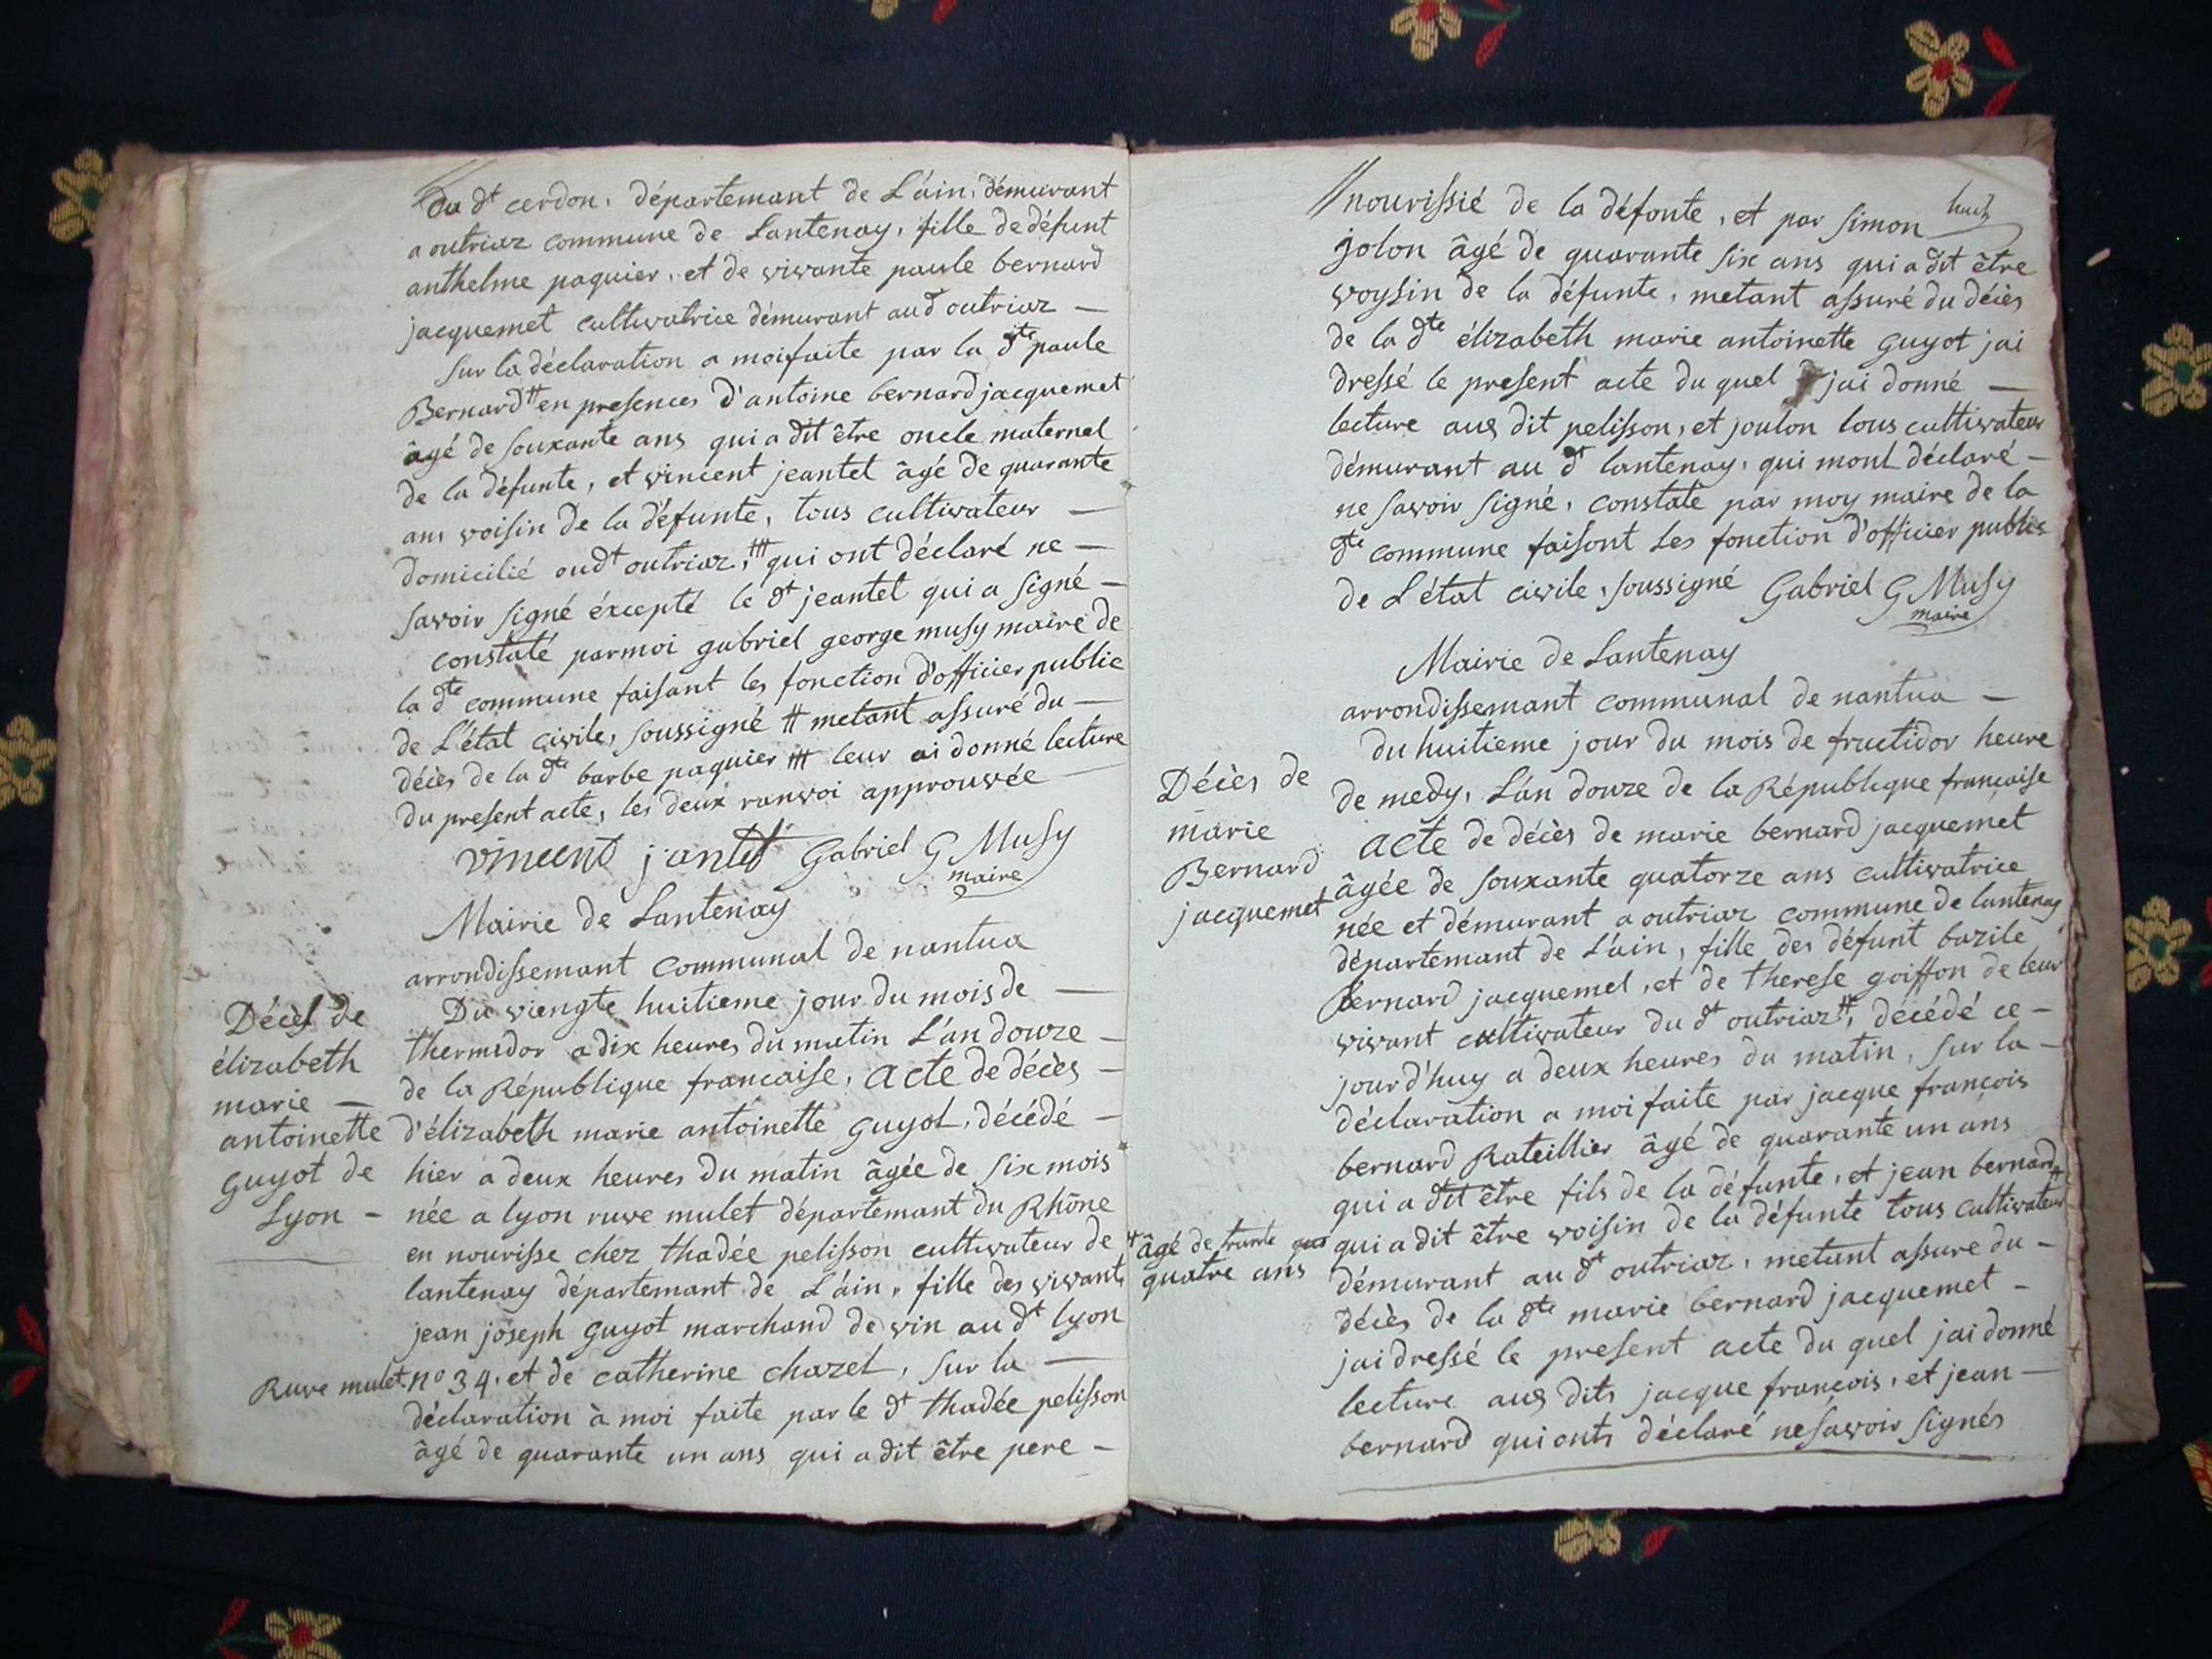 du dt cerdon, départemant de L'áin, démurant
a outriaz commune de Lantenay, fille de défunt
anthelme paquier, et de vivante paule bernard
jacquemet cultivatrice démurant aud outriaz —
sur la déclaration a moi faite par la dte paule
Bernard # en presences d'antoine bernard jacquemet
âgé de souxante ans qui a dit être oncle maternel
de la défunte, et vincent jeantet âgé de quarante
ans voisin de la défunte, tous cultivateur —
domicilié oudt outriaz, ## qui ont déclaré ne —
savoir signé éxcepté le dt jeantet qui a signé —
constaté par moi gabriel george musy maire de
la dte commune faisant les fonction d'officier public
de L'état civile, soussigné # metant assuré du —
décès de la dte barbe paquier ## leur ai donné lecture
du present acte, les deux ranvoi approuvée —
vincent jantet Gabriel G Musy
maire
Mairie de Lantenay
arrondissemant communal de nantua
Décès de
élizabeth
marie —
antoinette
guyot de
Lyon —
Du viengte huitieme jour du mois de —
thermidor a dix heures du matin L'án douze —
de la République francaise, acte de décès —
d'élizabeth marie antoinette guyot, décédé —
hier a deux heures du matin âgée de six mois
née a lyon ruve mulet départemant du Rhône
en nourisse chez thadée pelisson cultivateur de
lantenay départemant de L'áin, fille des vivant
jean joseph guyot marchand de vin au dt lyon
Ruve mulet. no 34. et de catherine chazet, sur la —
déclaration à moi faite par le dt thadée pelisson
âgé de quarante un ans qui a dit être pere —
nourissié de la défonte, et par simon
huit
jolon âgé de quarante six ans qui a dit être
voysin de la défunte, metant assuré du décès
de la dte élizabeth marie antoinette guyot jai
dressé le present acte du quel jai donné —
lecture aus dit pelisson, et joulon tous cultivateur
démurant au dt lantenay, qui mont déclaré —
ne savoir signé, constaté par moy maire de la
dte commune faisont les fonction d'officier public
de L'état civile, soussigné Gabriel G Musy
maire
Mairie de Lantenay
arrondissemant communal de nantua —
Décès de
marie
Bernard
jacquemet
du huitieme jour du mois de fructidor heure
de medy, L'án douze de la République francaise
acte de décès de marie bernard jacquemet
âgée de souxante quatorze ans cultivatrice
née et démurant a outriaz commune de lantenay
département de L'áin, fille des défunt bazile
Bernard jacquemet, et de therese goiffon de leur
vivant cultivateur du dt outriaz #, décédé ce —
jourd'huy a deux heures du matin, sur la —
déclaration a moi faite par jacque françois
bernard Rateillier âgé de quarante un ans
qui a dit être fils de la défunte, et jean bernard #
# âgé de trante
quatre ans
qui a dit être voisin de la défunte tous cultivateur
démurant au dt outriaz, metant assure du —
décès de la dte marie bernard jacquemet —
jai dressé le present acte du quel jai donné
lecture aus dits jacque françois, et jean —
bernard qui onts déclaré ne savoir signés